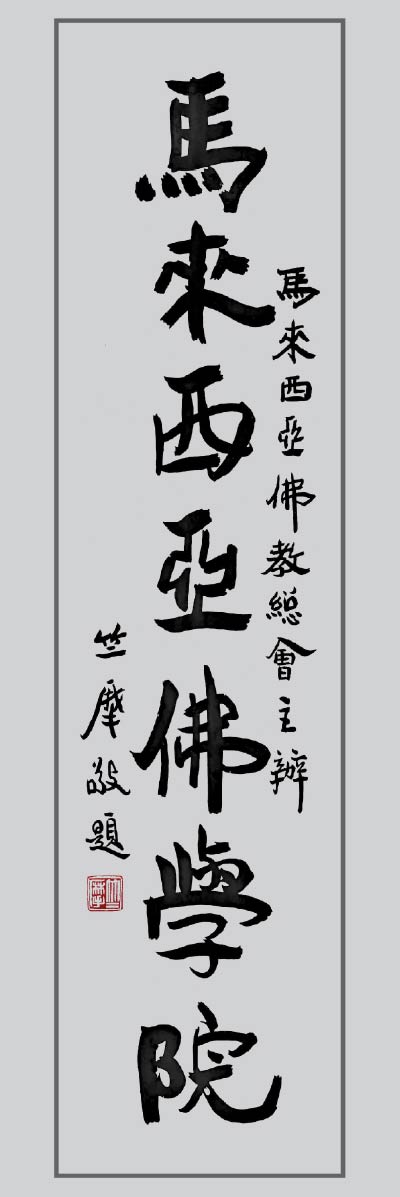 馬來西亞佛教總會主辦
馬來西亞佛學院
竺摩敬題
竺摩